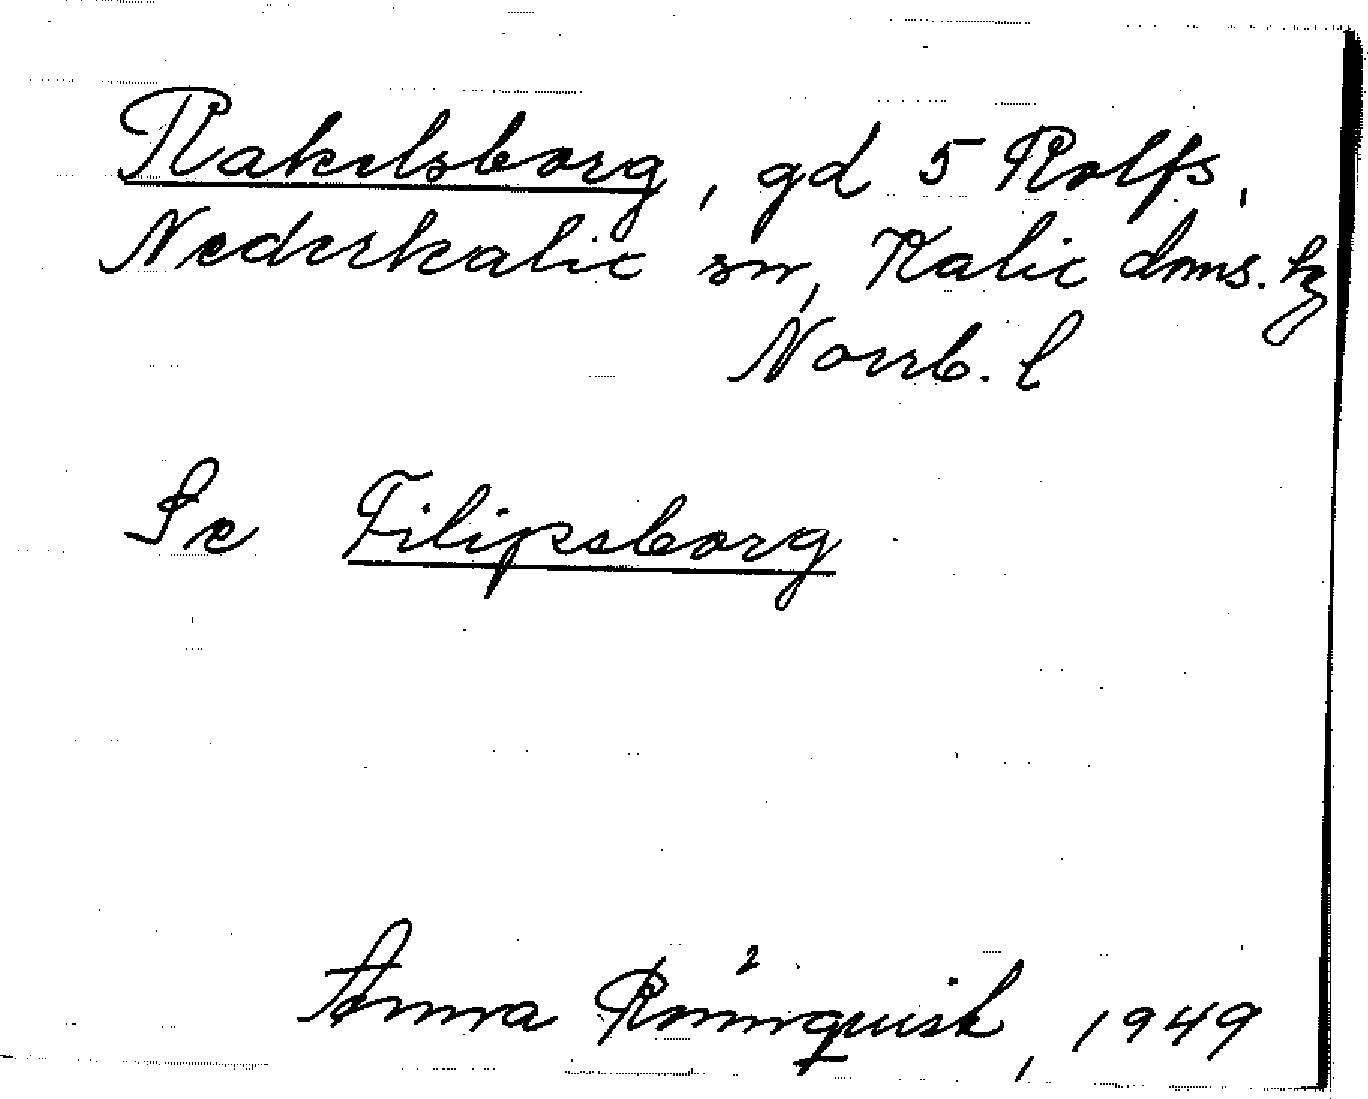 Rakelsborg, gd 5 Rolfs,
Nederkalix sn, Kalix doms. hg
Norrb. l
Se Filipsborg
Anna Rönnquist, 1949